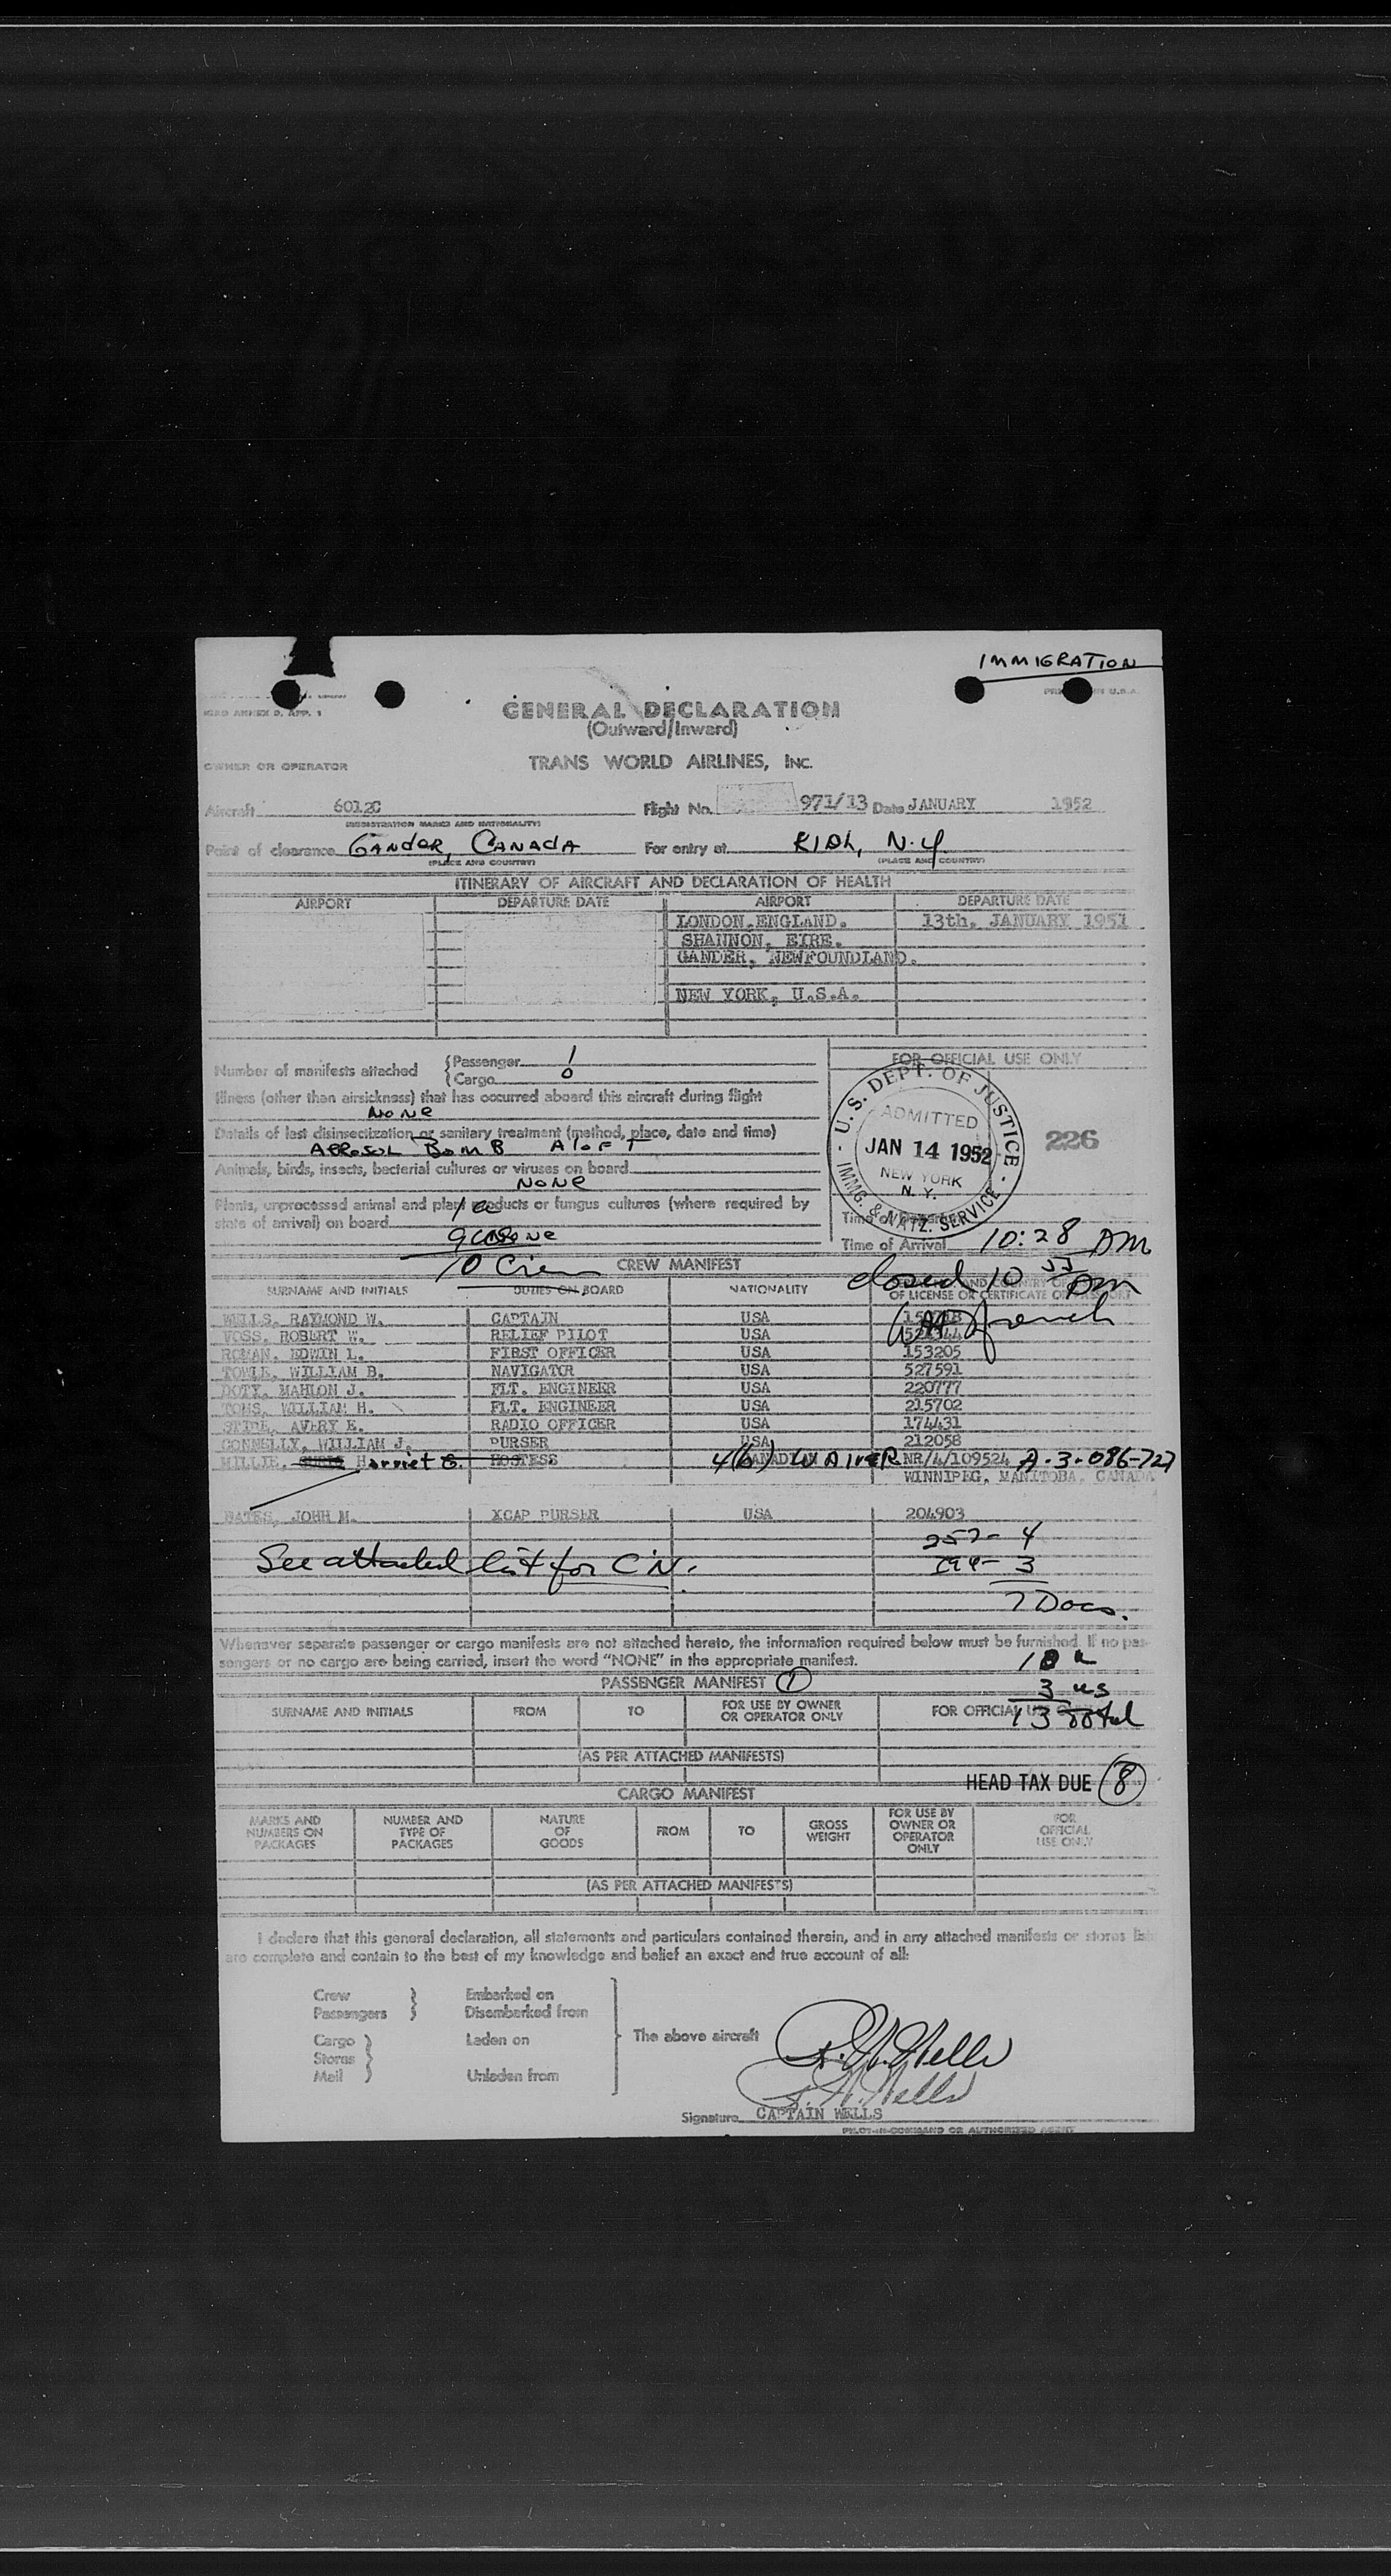 IMMIGRATION
ICAO ANNEX 9, APP. 1
GENERAL DECLARATION
(Outward/Inward)
OWNER OR OPERATOR TRANS WORLD AIRLINES, INC.
Aircraft 6012C Flight No. 971/13 Date JANUARY 1952
(REGISTRATION MARKS AND NATIONALITY)
Point of clearance GANDER, CANADA For entry at KIDL, N.Y.
(PLACE AND COUNTRY) (PLACE AND COUNTRY)
ITINERARY OF AIRCRAFT AND DECLARATION OF HEALTH
AIRPORT DEPARTURE DATE AIRPORT DEPARTURE DATE
LONDON,ENGLAND. 13th. JANUARY 1951
SHANNON, EIRE.
GANDER, NEWFOUNDLAND.
NEW YORK, U.S.A.
Number of manifests attached {Passenger 1
{Cargo 0
FOR OFFICIAL USE ONLY
Illness (other than airsickness) that has occurred aboard this aircraft during flight
NONE
Details of last disinsectization or sanitary treatment (method, place, date and time)
AEROSOL BOMB ALOFT
Animals, birds, insects, bacterial cultures or viruses on board
NONE
Plants, unprocessed animal and plant products or fungus cultures (where required by
state of arrival) on board
U.S. DEPT. OF JUSTICE
ADMITTED
JAN 14 1952
NEW YORK
N. Y.
IMMG. & NATZ. SERVICE
226
Time of Arrival 10:28 PM
10 Crew CREW MANIFEST
closed 10 55 PM
SURNAME AND INITIALS DUTIES ON BOARD NATIONALITY OF LICENSE OR CERTIFICATE OR PASSPORT
WELLS, RAYMOND W. CAPTAIN USA
VOSS, ROBERT W. RELIEF PILOT USA
ROMAN, EDWIN L. FIRST OFFICER USA 153205
TOWLE, WILLIAM B. NAVIGATOR USA 527591
DOTY, MAHLON J. FLT. ENGINEER USA 220777
TOMS, WILLIAM H. FLT. ENGINEER USA 215702
AVERY E. RADIO OFFICER USA 174431
CONNELLY, WILLIAM J. PURSER USA 212058
MILLIE, Harriet G. HOSTESS 4(b) WAIVER NR/4/109524 A-3-086-727
WINNIPEG, MANITOBA, CANADA
BATES, JOHN M. XCAP PURSER USA 204903
257- 4
See attached list for C'N. 3
7 Docs.
Whenever separate passenger or cargo manifests are not attached hereto, the information required below must be furnished. If no pas-
sengers or no cargo are being carried, insert the word "NONE" in the appropriate manifest.
PASSENGER MANIFEST 1
3 us
SURNAME AND INITIALS FROM TO FOR USE BY OWNER OR OPERATOR ONLY FOR OFFICIAL USE
13 total
(AS PER ATTACHED MANIFESTS)
HEAD TAX DUE 8
CARGO MANIFEST
MARKS AND NUMBERS ON PACKAGES NUMBER AND TYPE OF PACKAGES NATURE OF GOODS FROM TO GROSS WEIGHT FOR USE BY OWNER OR OPERATOR ONLY FOR OFFICIAL USE ONLY
(AS PER ATTACHED MANIFESTS)
I declare that this general declaration, all statements and particulars contained therein, and in any attached manifests or stores lis
are complete and contain to the best of my knowledge and belief an exact and true account of all:
Crew } Embarked on
Passengers } Disembarked from
Cargo } Laden on The above aircraft R.W. Wells
Stores }
Mail } Unladen from R.W. Wells
Signature CAPTAIN WELLS
PILOT-IN-COMMAND OR AUTHORIZED AGENT